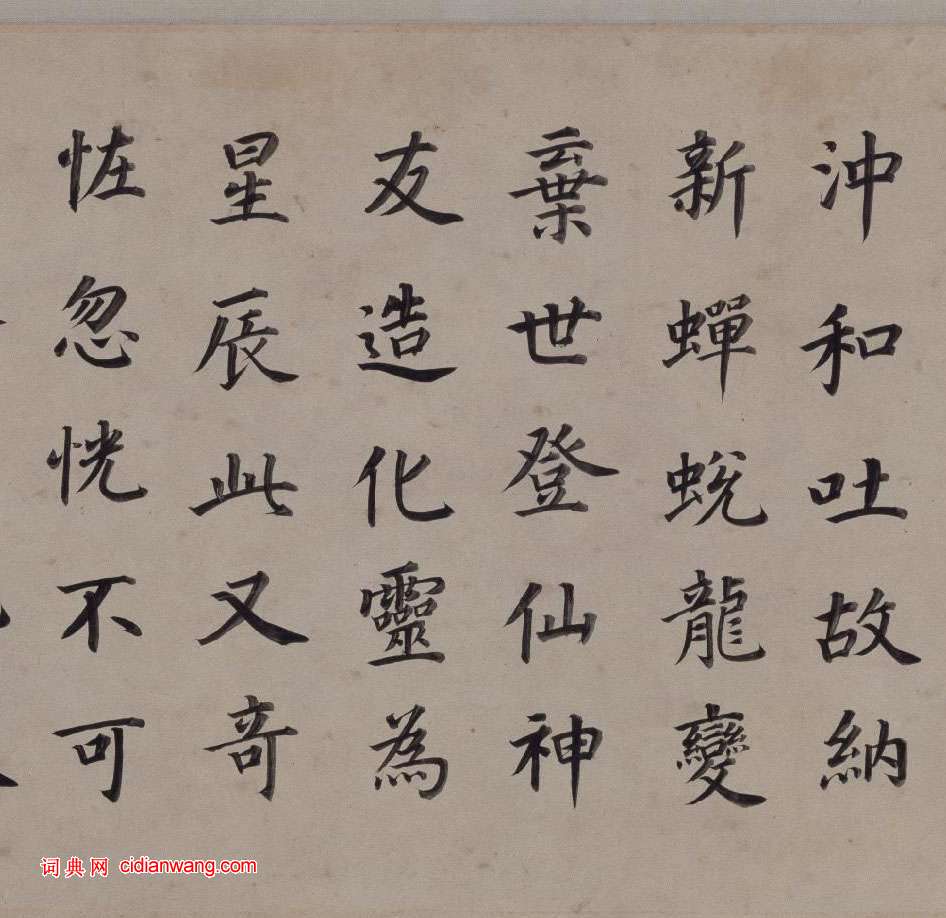 沖和吐故納
新蟬蛻龍變
棄世登仙神
友造化靈為
星辰此又奇
恠忽恍不可
词典网 cidianwang.com